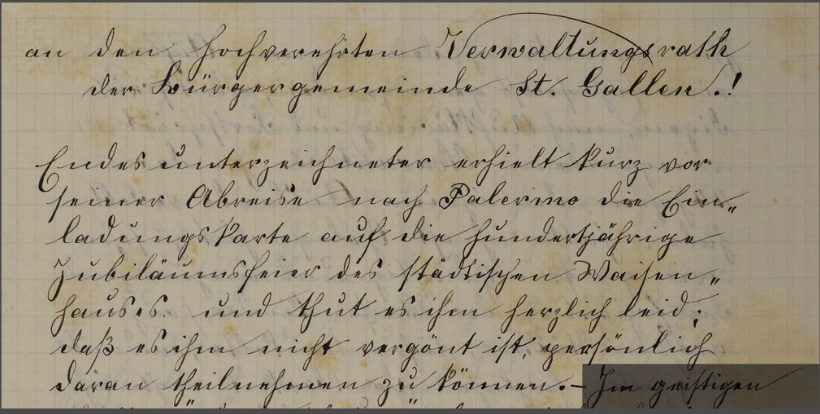 an den hochverehrten Verwaltungsrath
der Bürgergemeinde St. Gallen.!
Endesunterzeichneter erhielt kurz vor
seiner Abreise nach Palermo die Ein„
ladungskarte auf die hundertjährige
Jubiläumsfeier des städtischen Waisen„
hauses. und thut es ihm herzlich leid;
daß es ihm nicht vergönt ist, persönlich
daran theilnehmen zu können. – Im geistigen